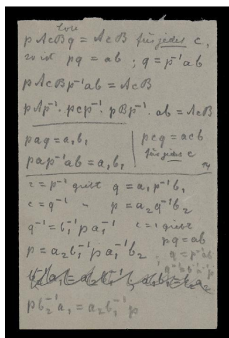 p A c B q = A c B für jedes c,
so ist pq = ab ; q = p⁻¹ab
p A c B p⁻¹ab = A c B
pAp⁻¹. pcp⁻¹. pBp⁻¹. ab = A c B
paq = a₁b₁
pap⁻¹ab = a₁b₁
pcq = acb
für jedes c
c = p⁻¹ giebt q = a₁p⁻¹b₁
c = q⁻¹ " p = a₂q⁻¹b₂
q⁻¹ = b₁⁻¹ p a₁⁻¹
c = 1 giebt
pq = ab
p = a₂b₁⁻¹ p a₁⁻¹b₂
q = p⁻¹ab
pb₂⁻¹a₁ = a₂b₁⁻¹p